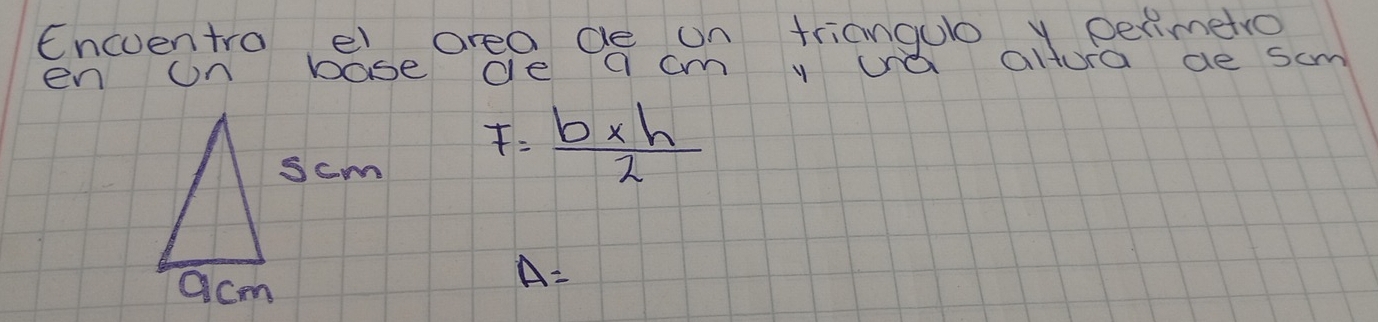 Encuentra el area de un triangulo y perimetro
en un base de 9 cm y una altura de 5cm
5cm
F= b x h
2
9cm
A=